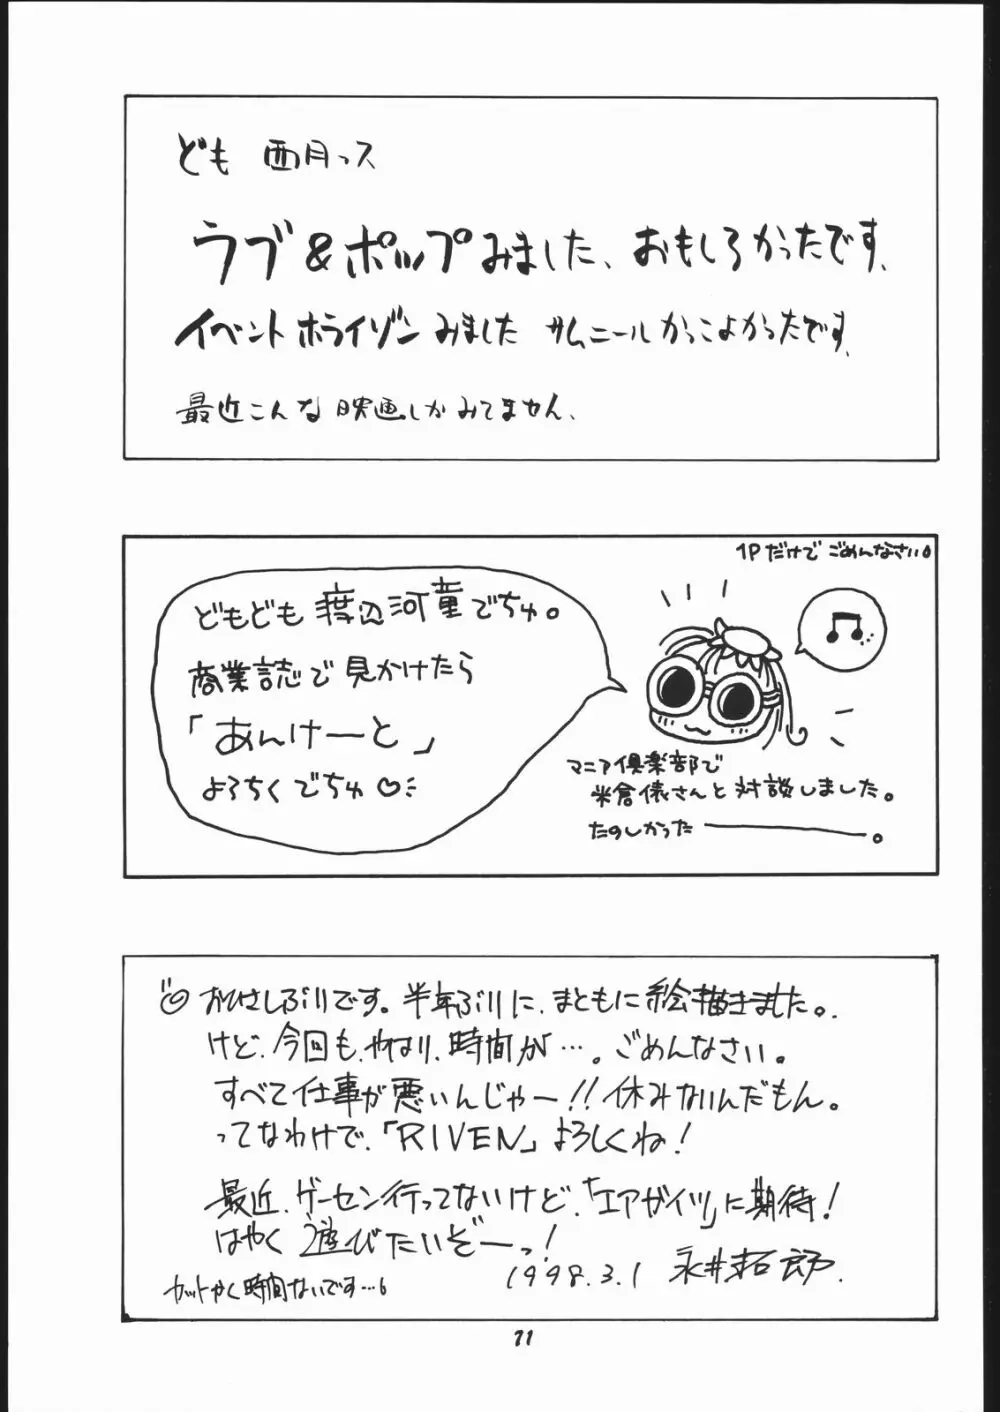 ども 西月っス
ラブ&ポップみました、おもしろかったです、
イベントホライゾンみました サムニールかっこよかったです、
最近こんな映画しかみてません、
1Pだけで ごめんなさい。
どもども 渡辺河童でちゅ。
商業誌で見かけたら
「あんけーと」
よろちくでちゅ♡
マニア倶楽部で
米倉俵さんと対談しました。
たのしかった――――。
おひさしぶりです。半年ぶりに、まともに絵描きました。
けど、今回も、やはり、時間が…。ごめんなさい。
すべて仕事が悪いんじゃー!!休みないんだもん。
ってなわけで、「RIVEN」よろしくね!
最近、ゲーセン行ってないけど、「エアガイツ」に期待!
はやく遊びたいぞーっ!
1998.3.1 永井拓郎.
カットかく時間ないです…。
71